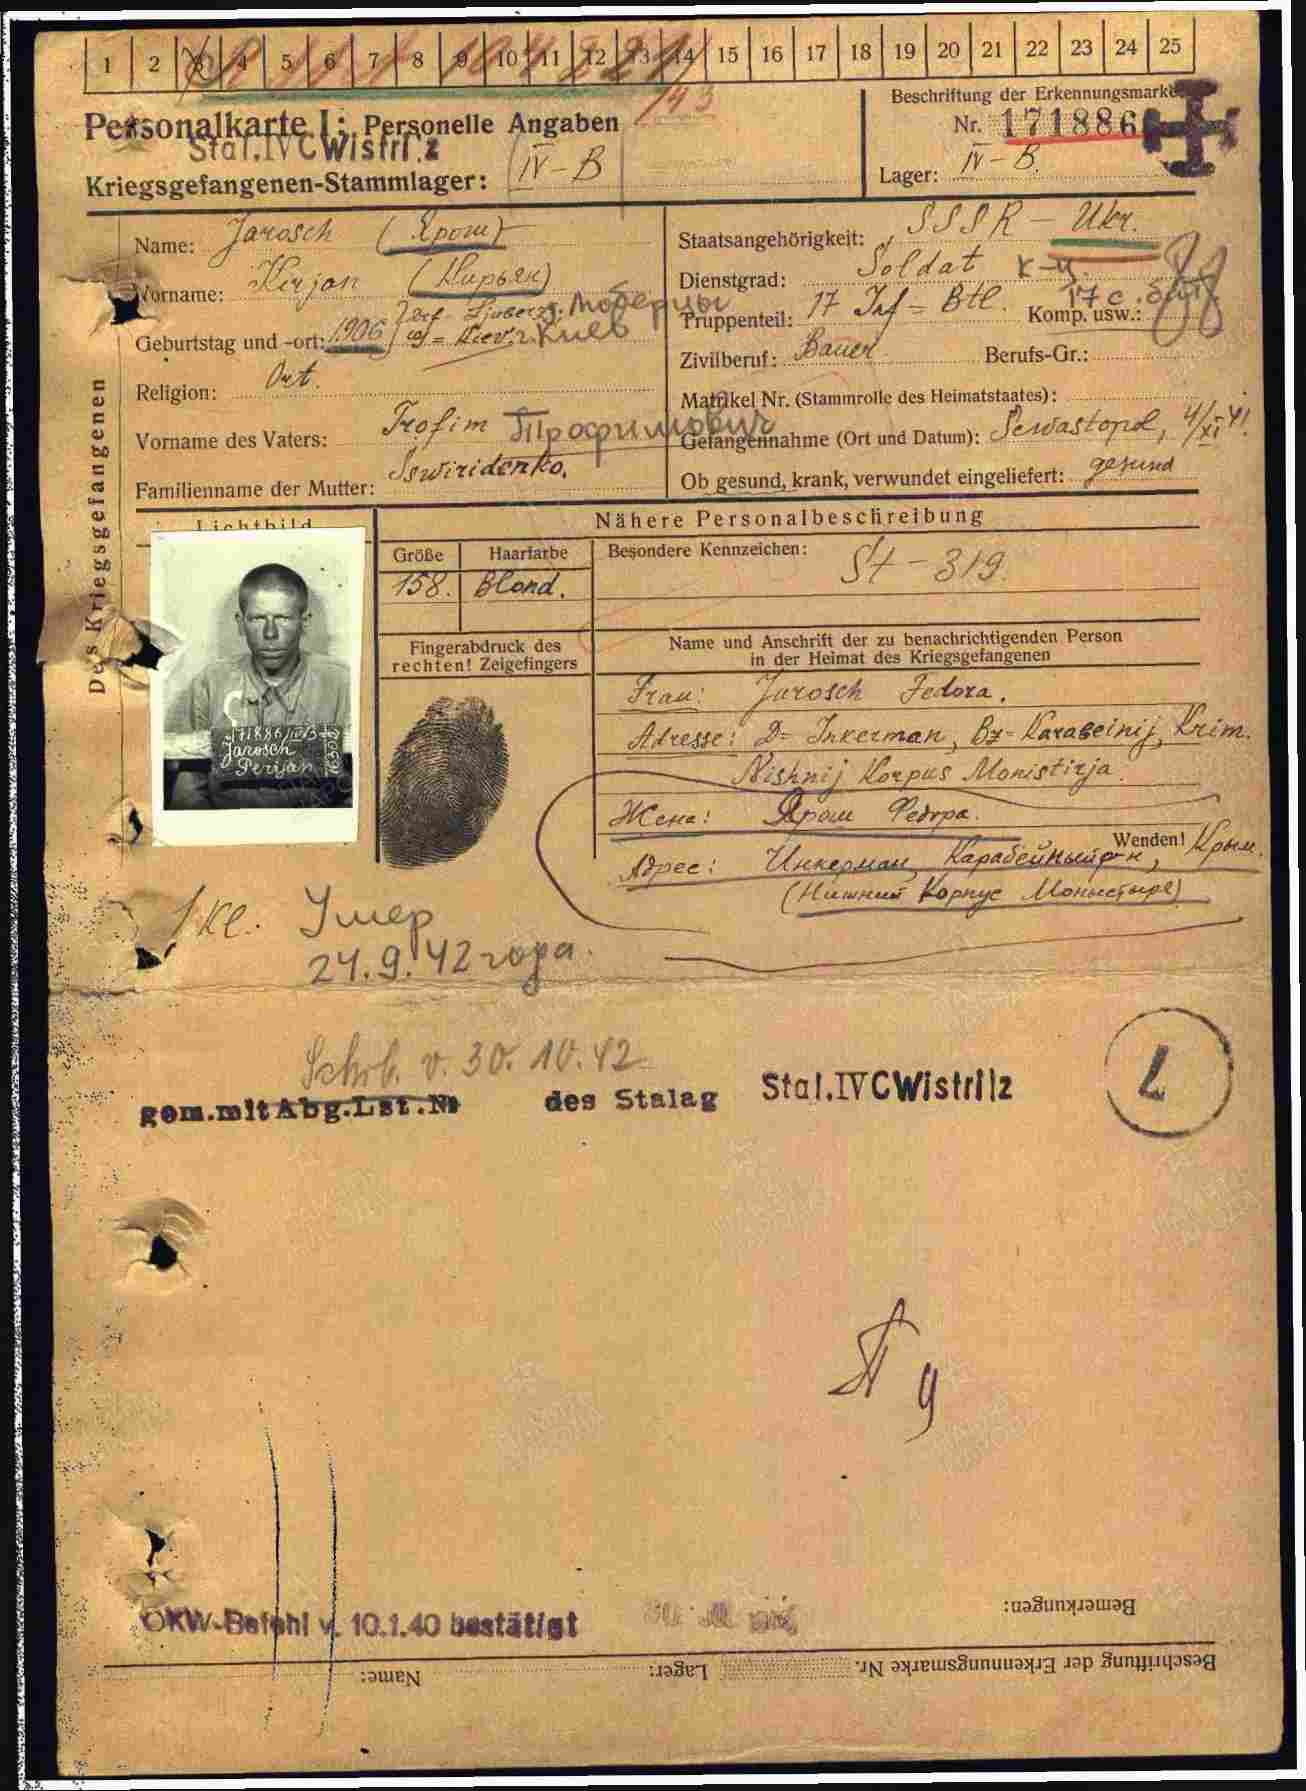 1 2 3 4 5 6 7 8 9 10 11 12 13 14 15 16 17 18 19 20 21 22 23 24 25
143
Personalkarte I: Personelle Angaben
Stal.IVC Wistritz
Kriegsgefangenen-Stammlager: IV-B
Beschriftung der Erkennungsmarke
Nr. 171886
Lager: IV-B.
Des Kriegsgefangenen
Name: Jarosch (Ярош)
Vorname: Kirjan (Кирьян)
Geburtstag und -ort: 1906
Kiev. г. Киев
Religion: Ort.
Vorname des Vaters: Trofim Трофимович
Familienname der Mutter: Sswiridenko.
Staatsangehörigkeit: SSSR - Ukr.
Dienstgrad: Soldat к-ц.
Truppenteil: 17 Inf = Btl. Komp. usw.: 17 с. бат.
Zivilberuf: Bauer Berufs-Gr.:
Matrikel Nr. (Stammrolle des Heimatstaates):
Gefangennahme (Ort und Datum): Sewastopol, 4/XI 41.
Ob gesund, krank, verwundet eingeliefert: gesund
Lichtbild
171886/IVB
Jarosch
Perijan
Nähere Personalbeschreibung
Größe Haarfarbe Besondere Kennzeichen:
158. Blond. St - 319.
Fingerabdruck des
rechten! Zeigefingers
Name und Anschrift der zu benachrichtigenden Person
in der Heimat des Kriegsgefangenen
Frau: Jarosch Fedora.
Adresse: D= Inkerman, Bz= Karabeinij, Krim.
Nishnij Korpus Monistirja.
Жена: Ярош Федора.
Wenden!
Адрес: Инкерман, Карабейный р-н, Крым.
(Нижний Корпус Монистыре)
Умер
24.9.42 года.
Schrb. v. 30.10.42
gem.mit Abg.Lst.Nr des Stalag Stal.IVC Wistritz
OKW-Befehl v. 10.1.40 bestätigt
Bemerkungen:
Beschriftung der Erkennungsmarke Nr. Lager: Name: